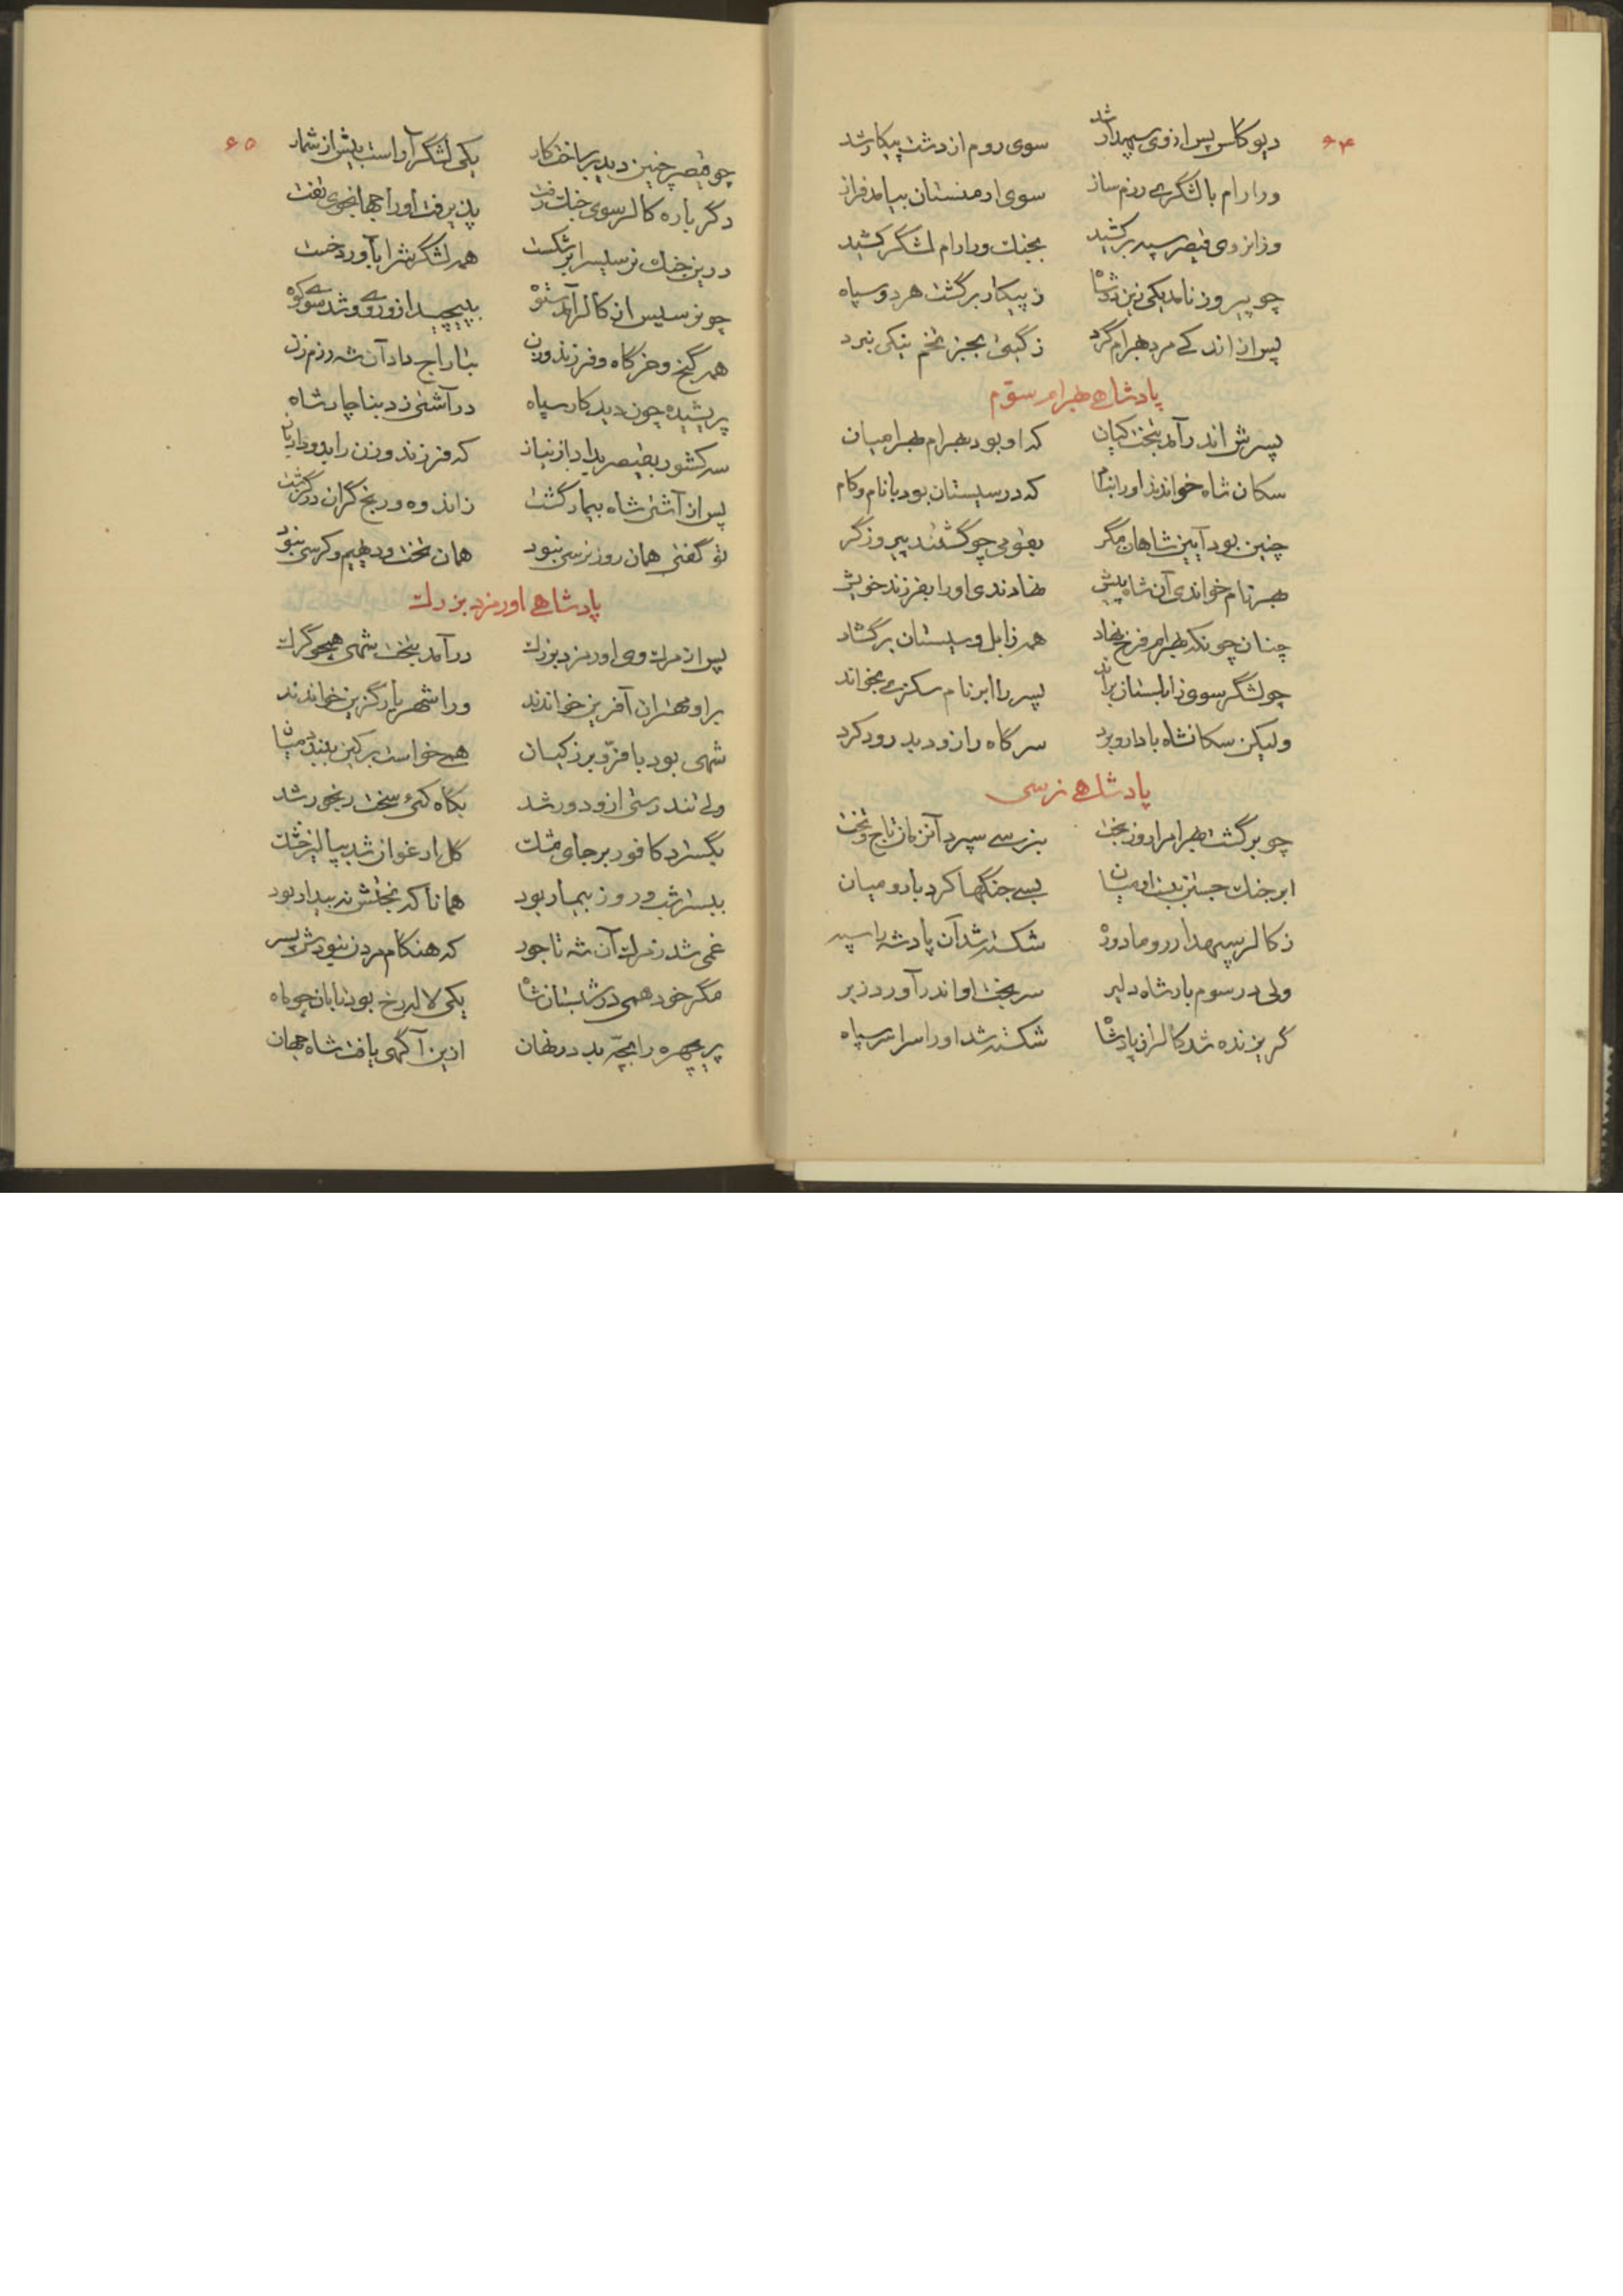 ۶۴
دیوکلس پس از وی سپهدار شد سوی روم از دشت پیکار شد
ورارام با لشگری رزم ساز سوی ارمنستان بیامد فراز
وزانروی قیصر سپه برکشید بجنگ ورارام لشگر کشید
چو پیروز نامد یکی زین دو شاه ز پیکار برگشت هر دو سپاه
پس از اندکی مرد بهرام گرد ز گیتی بجز تخم نیکی نبرد
پادشاهی بهرام سوّم
پسرش اندر آمد بتخت کیان که او بود بهرام بهرامیان
سکان شاه خواندند او را بنام که در سیستان بود با نام و کام
چنین بود آیین شاهان مگر بقومی چو گشتند پیروزگر
بهر نام خواندی آن شاه پیش نهادندی او را بفرزند خویش
چنان چونکه بهرام فرخ نهاد همه زابل و سیستان برگشاد
چو لشگر سوی زابلستان براند پسر را ابر نام سکزی بخواند
ولیکن سکانشاه با دار و برد سر گاه را زود بدرود کرد
پادشاهی نرسی
چو برگشت بهرام را روز بخت بنرسی سپرد آنزمان تاج و تخت
ابر جنگ جستن ببست او میان بسی جنگها کرد با رومیان
ز کالر سپهدار روما دو ره شکسته شد آن پادشه را سپه
ولی در سوم بار شاه دلیر سر بخت او اندر آورد زیر
گریزنده شد کالر از پادشاه شکسته شد او را سراسر سپاه
۶۵
چو قیصر چنین دید بر ساخت کار یکی لشگر آراست بیش از شمار
دگر باره کالر سوی جنگ رفت پذیرفت او را جهانجوی تفت
درین جنگ نرسیس را برشکست همه لشگرش را بآورد خست
چو نرسیس از کالر آمد ستوه بپیچید ازو روی و شد سوی کوه
همه گنج و خرگاه و فرزند و زن بتاراج داد آن شه رزم زن
پریشیده چون دید کار سپاه در آشتی زد بناچار شاه
سر کشور بقیصر بداد از نیاز که فرزند و زن را بدو داد باز
پس از آشتی شاه بیمار گشت ز اندوه و رنج گران درگذشت
تو گفتی همان روز نرسی نبود همان تخت و دیهیم و کرسی نبود
پادشاهی اورمزد بزرگ
پس از مرگ وی اورمزد بزرگ درآمد بتخت شهی همچو گرگ
بر او مهتران آفرین خواندند ورا شهریار گزین خواندند
شهی بود با فرّ و برز کیان همی خواست بر کین ببندد میان
ولی تندرستی ازو دور شد بگاه کئی سخت رنجور شد
بگسترد کافور بر جای مشک گل ارغوان شد بپالیز خشک
ببستر شب و روز بیمار بود همانا که بختش نه بیدار بود
غمی شد ز مرگ آن شه تاجور که هنگام مردن نبودش پسر
مگر خود همی در شبستان شاه یکی لاله رخ بود تابان چو ماه
پریچهره را بچّه بد در نهان ازین آگهی یافت شاه جهان